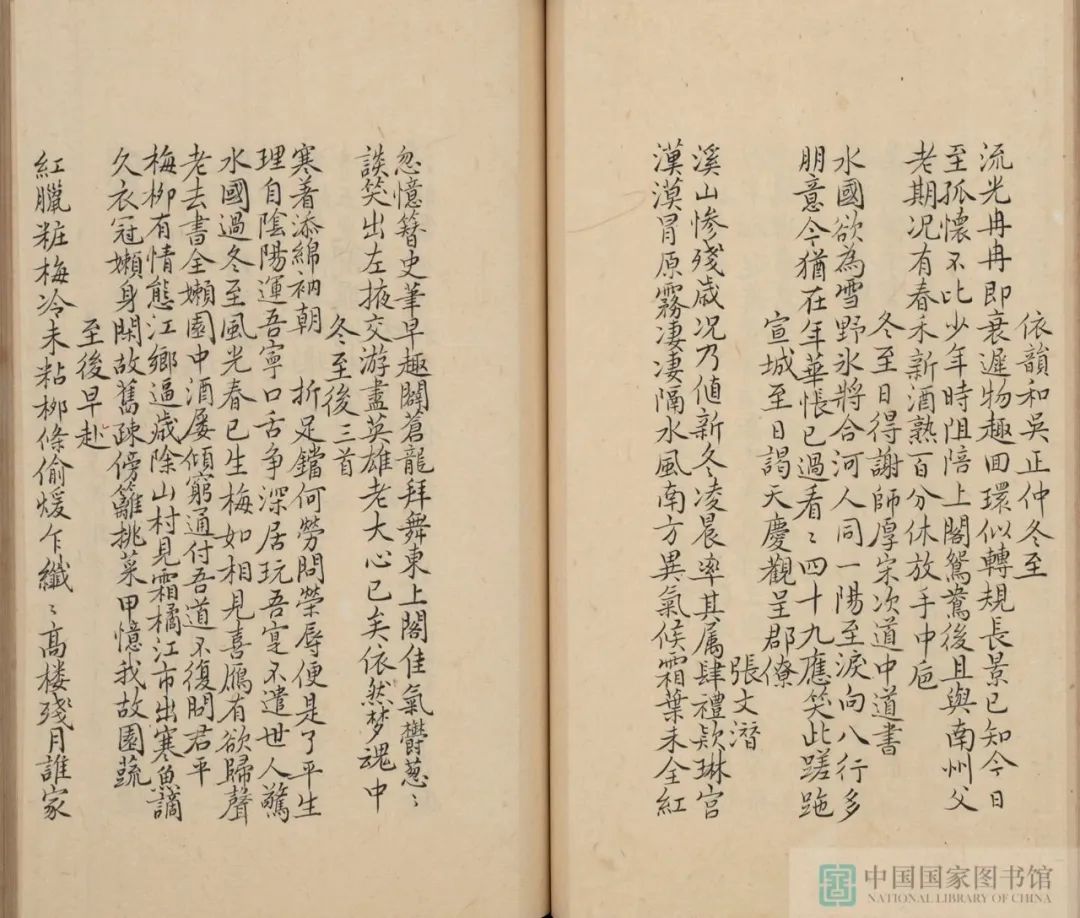 依韻和吳正仲冬至
流光冉冉即衰遲物趣囬環似轉規長景已知今日
至孤懷不比少年時阻陪上閤鴛鴦後且與南州父
老期况有春禾新酒熟百分休放手中巵
冬至日得謝師厚宋次道中道書
水國欲為雪野氷將合河人同一陽至淚向八行多
朋意今猶在年華悵已過看〻四十九應笑此蹉跎
宣城至日謁天慶觀呈郡僚
張文潛
溪山慘殘歳况乃值新冬凌晨率其属肆禮欵琳宮
漠漠冒原霧凄凄隔水風南方異氣候霜葉未全紅
忽憶簪史筆早趣闢蒼龍拜舞東上閣佳氣欝葱〻
談笑出左掖交游盡英雄老大心已矣依然梦魂中
冬至後三首
寒着添綿衲朝 折足鐺何勞問榮辱便是了平生
理自陰陽運吾寧口舌争深居玩吾寔不遣世人驚
水國過冬至風光春已生梅如相見喜鴈有欲歸聲
老去書全嬾園中酒屡傾窮通付吾道不復問君平
梅柳有情態江鄉逼歳除山村見霜橘江市出寒魚謫
久衣冠嬾身閑故舊疎傍籬挑菜甲憶我故園蔬
至後早赴
紅臘粧梅冷未粘柳條偷煖乍纖〻高楼殘月誰家
中国国家图书馆
NATIONAL LIBRARY OF CHINA